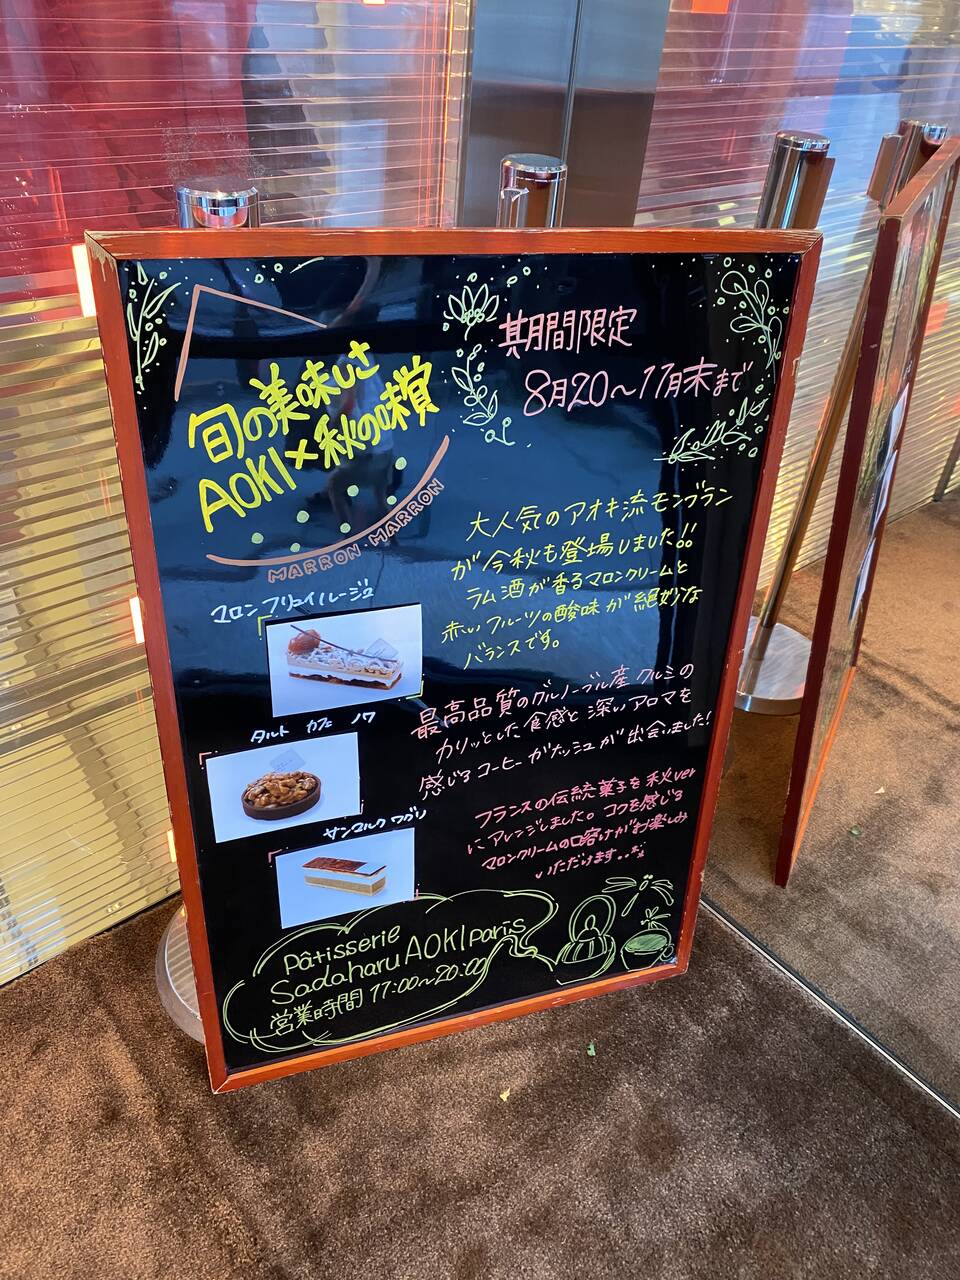 旬の美味しさ
AOKI×秋の味覚
MARRON・MARRON
期間限定
8月20〜11月末まで
マロンフリュイルージュ
大人気のアオキ流モンブラン
が今秋も登場しました!!
ラム酒が香るマロンクリームと
赤いフルーツの酸味が絶妙な
バランスです。
タルト カフェ ノワ
最高品質のグルノーブル産クルミの
カリッとした食感と深いアロマを
感じるコーヒーガナッシュが出会いました!
サンマルクワグリ
フランスの伝統菓子を秋ver
にアレンジしました。コクを感じる
マロンクリームの口溶けがお楽しみ
いただけます。
Pâtisserie
Sadaharu AOKI paris
営業時間 11:00〜20:00